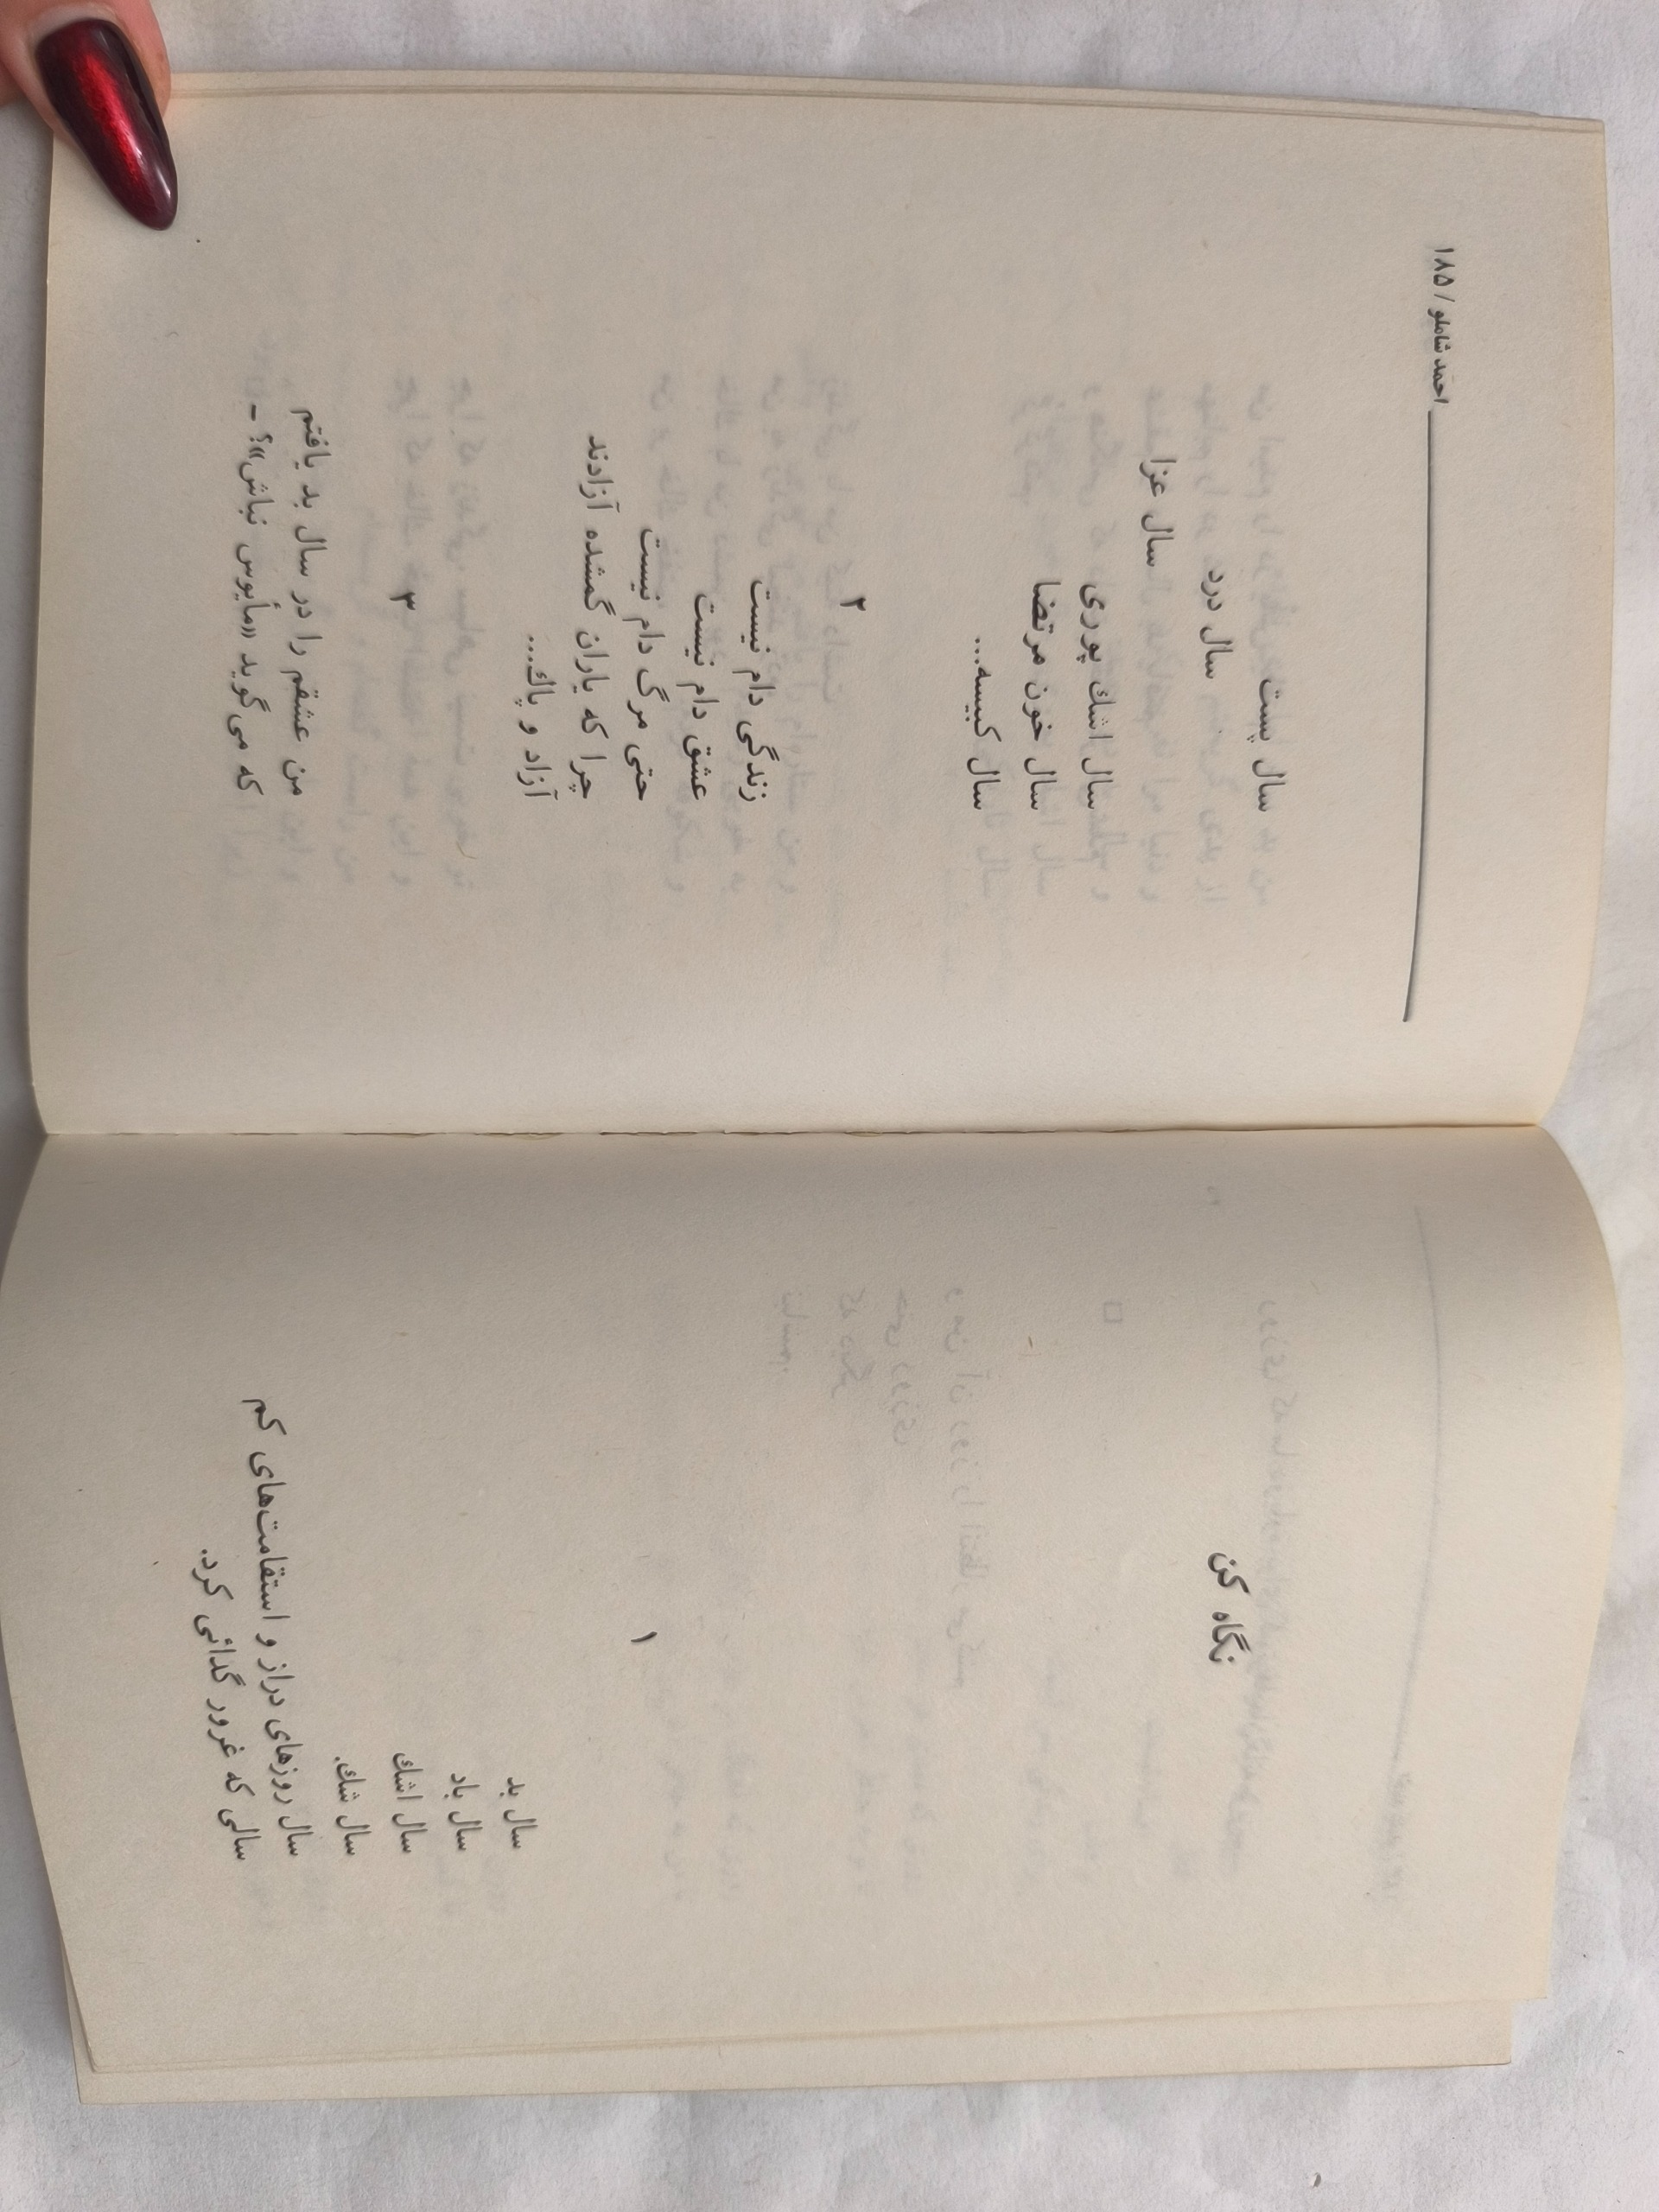 نگاه کن
۱
سال بد
سال باد
سال اشك
سال شك.
سال روزهای دراز و استقامت‌های کم
سالی که غرور گدائی کرد.
احمد شاملو / ۱۸۵
سال پست
سال درد
سال عزا
سال اشك پوری
سال خون مرتضا
سال کبیسه...
۲
زندگی دام نیست
عشق دام نیست
حتی مرگ دام نیست
چرا که یاران گمشده آزادند
آزاد و پاك...
۳
من عشقم را در سال بد یافتم
که می‌گوید «مأیوس نباش»؟ -